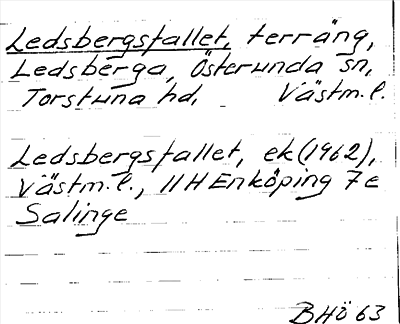 Ledsbergsfallet, terräng,
Ledsberga, Österunda sn,
Torstuna hd. Västm. l.
Ledsbergsfallet, ek (1962),
Västm. l., 11 H Enköping 7e
Salinge
BHö 63